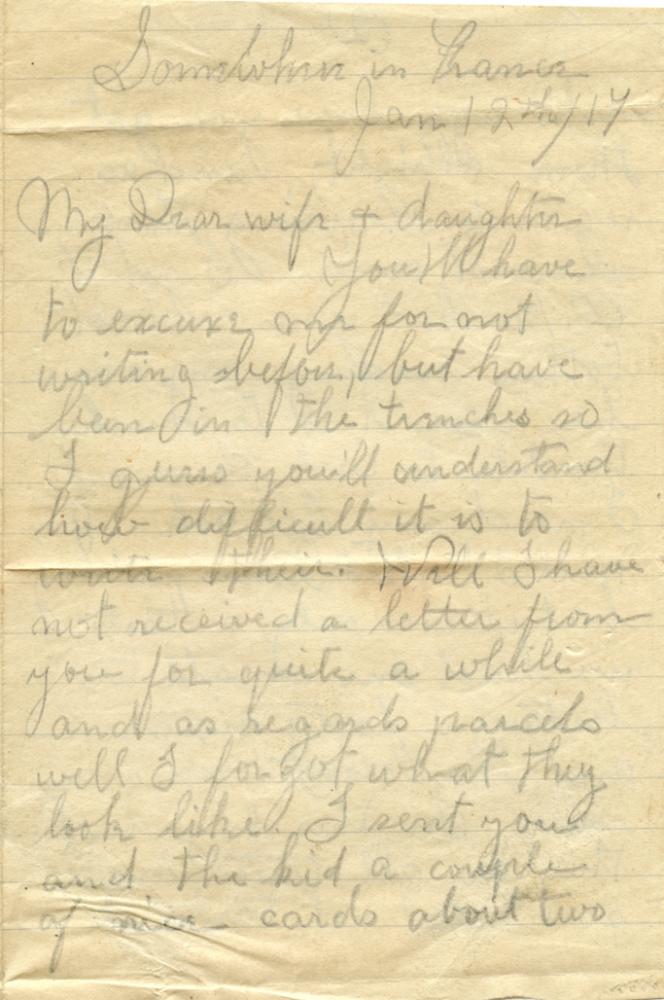 Somewhere in France
Jan 12th/17
My Dear wife + daughter
You'll have
to excuse me for not
writing before, but have
been in the trenches so
I guess you'll understand
how difficult it is to
write their. Well I have
not received a letter from
you for quite a while
and as regards parcels
well I forgot what they
look like. I sent you
and the kid a couple
of nice cards about two